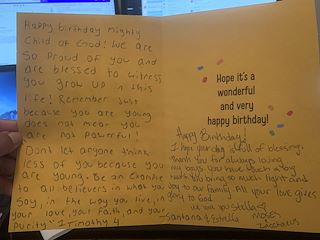 Happy birthday Mighty
Child of God! We are
So Proud of you and
are blessed to witness
you grow up in this
life! Remember Just
because you are young
does not mean you
are not powerful!
Dont let anyone think
less of you because you
are young. Be an Example
to all believers in what you
Say, in the way you live, in
your love, your faith, and your
Purity" 1 Timothy 4
Hope it's a
wonderful
and very
happy birthday!
Happy Birthday!
I hope your day is full of blessing.
Thank you for always loving
our boys. You have such a
you bring so much light and
joy to our family. All your love gives
glory to God.
we love you
Santana & Estrella
Moses
Zacchaeus